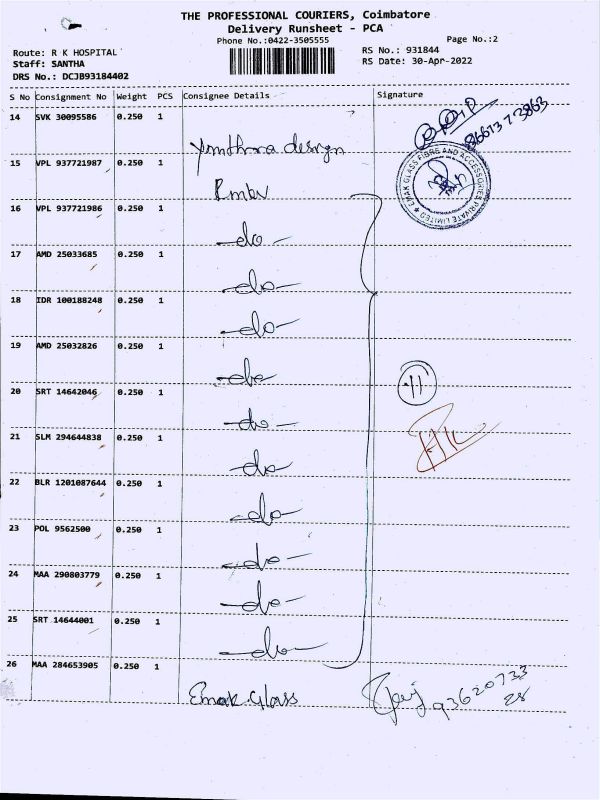 THE PROFESSIONAL COURIERS, Coimbatore
Delivery Runsheet - PCA
Phone No.:0422-3505555
Page No.:2
Route: R K HOSPITAL
Staff: SANTHA
DRS No.: DCJB93184402
RS No.: 931844
RS Date: 30-Apr-2022
S No Consignment No Weight PCS Consignee Details Signature
14 SVK 30095586 0.250 1
design
15 VPL 937721987 0.250 1
16 VPL 937721986 0.250 1
-do-
17 AMD 25033685 0.250 1
-do-
18 IDR 100188248 0.250 1
-do-
19 AMD 25032826 0.250 1
-do-
20 SRT 14642046 0.250 1
-do-
21 SLM 294644838 0.250 1
-do-
22 BLR 1201087644 0.250 1
-do-
23 POL 9562500 0.250 1
-do-
24 MAA 290803779 0.250 1
-do-
25 SRT 14644001 0.250 1
-do-
26 MAA 284653905 0.250 1
Emak Glass
EMAK GLASS FIBRE AND ACCESSORIES PRIVATE LIMITED
11